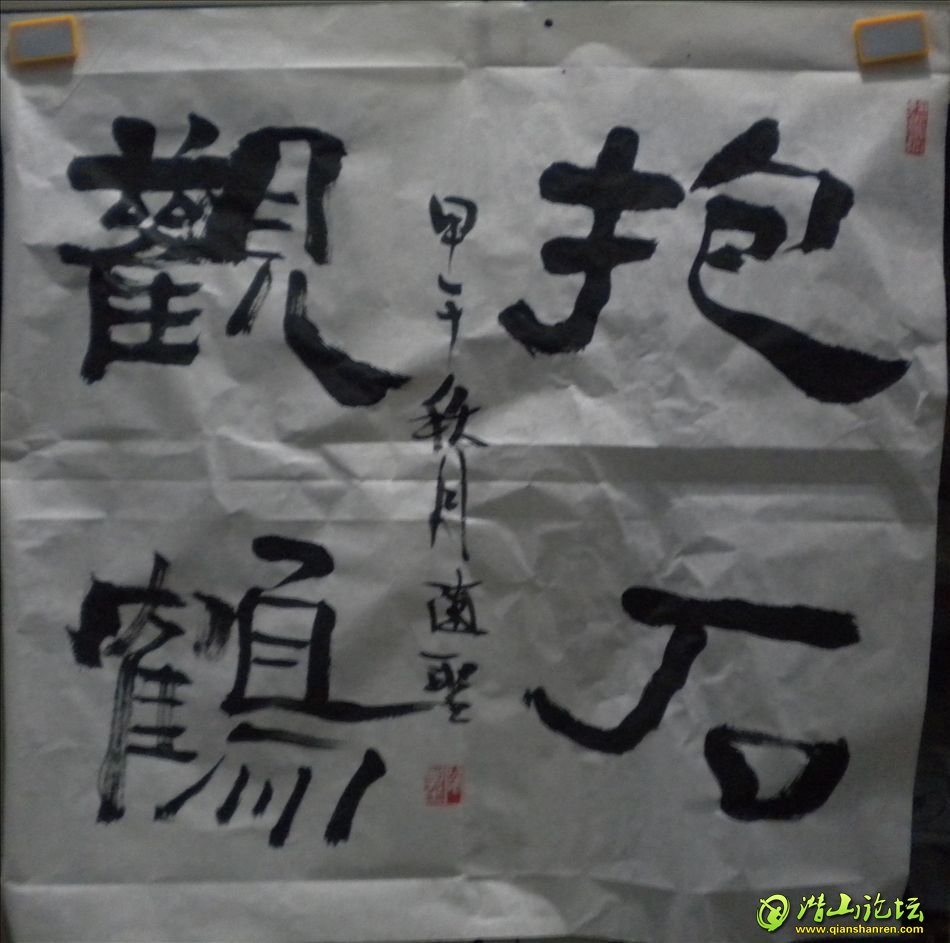 抱石
觀鶴
甲午秋月
潜山论坛
www.qianshanren.com